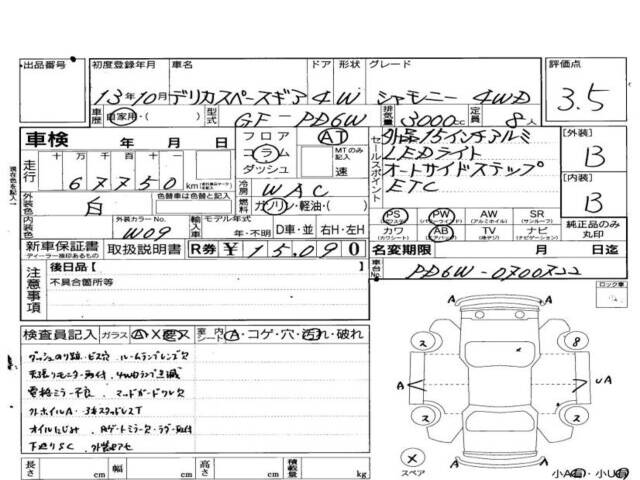 出品番号
初度登録年月 車名 ドア 形状 グレード
評価点
13年10月 デリカスペースギア 4 W シャモニー 4WD
3.5
車歴 自家用・( ) 型式 GF-PD6W 排気量 3000cc 定員 8人
車検 年 月 日
フロア コラム ダッシュ
AT
MTのみ記入
速
セールスポイント
外品15インチアルミ
LEDライト
オートサイドステップ
ETC
[外装]
B
[内装]
B
走行 十万 万 千 百 十
67750 km
冷房 WAC
外装色 白 色替車は元色記入
燃料 ガソリン・軽油・( )
内装色 外装カラーNo. W09
輸入車 モデル年式 年・不明 D車・並 右H・左H
PS PW AW SR
(パワーウインドウ) (アルミホイル) (サンルーフ)
カワ AB TV ナビ
(カワシート) (エアバッグ)
純正品のみ丸印
新車保証書 取扱説明書 R券 ¥15,090
ディーラー捺印あるもの
名変期限 月 日迄
車台No. PD6W-0700722
注意事項
後日品[ ]
不具合箇所等
ロック車
検査員記入 ガラス A・X・要X 室内シート A・コゲ・穴・汚れ・破れ
ダッシュのり跡・ビス穴 ルームランプレンズ欠
天張りモニター取付・4WDランプ点滅
電格ミラー不良・マッドガードワレ欠
外ホイルA・3本スタッドレスT
オイルにじみ・Aゲートミラー欠・ラダー取付
下廻りSC
A A UA A
スペア
長さ cm 幅 cm 高さ cm 積載量 kg
小A有・小U有